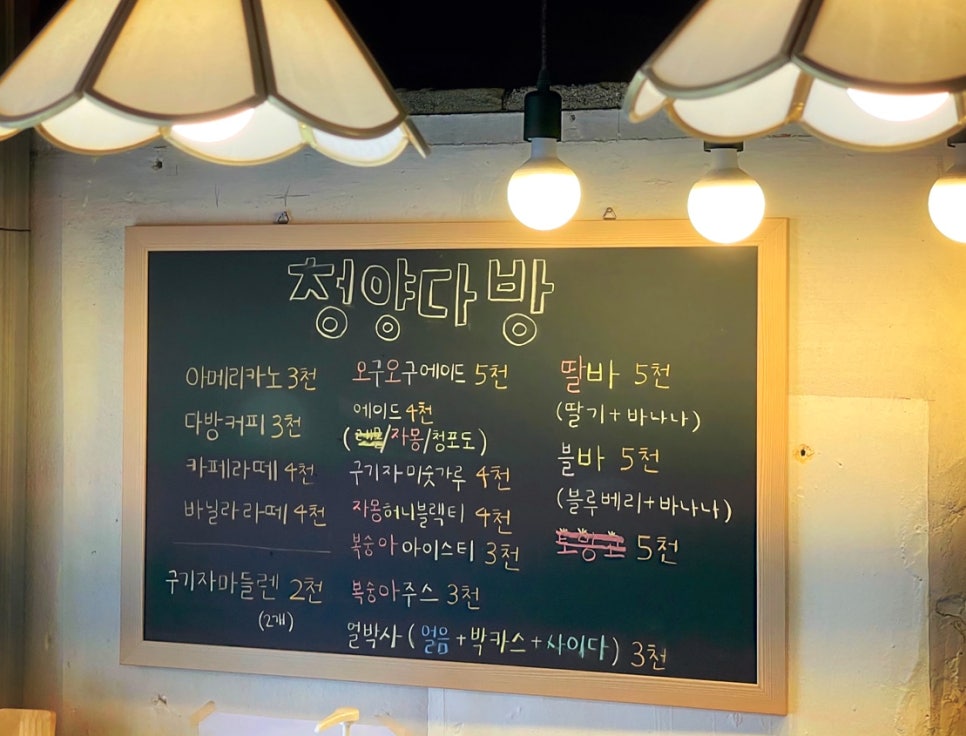 청양다방
아메리카노 3천
다방커피 3천
카페라떼 4천
바닐라라떼 4천
구기자마들렌 2천
(2개)
오구오구에이드 5천
에이드 4천
(/자몽/청포도)
구기자미숫가루 4천
자몽허니블랙티 4천
복숭아아이스티 3천
복숭아주스 3천
얼박사 (얼음+박카스+사이다) 3천
딸바 5천
(딸기+바나나)
블바 5천
(블루베리+바나나)
5천